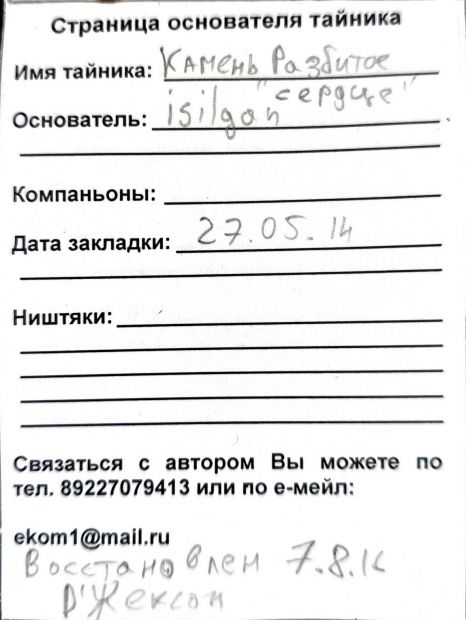 Страница основателя тайника
Имя тайника: Камень Разбитое
"сердце"
Основатель: isilgan
Компаньоны:
Дата закладки: 27.05.14
Ништяки:
Связаться с автором Вы можете по
тел. 89227079413 или по е-мейл:
ekom1@mail.ru
Восстановлен 7.8.16
Д'Жексон